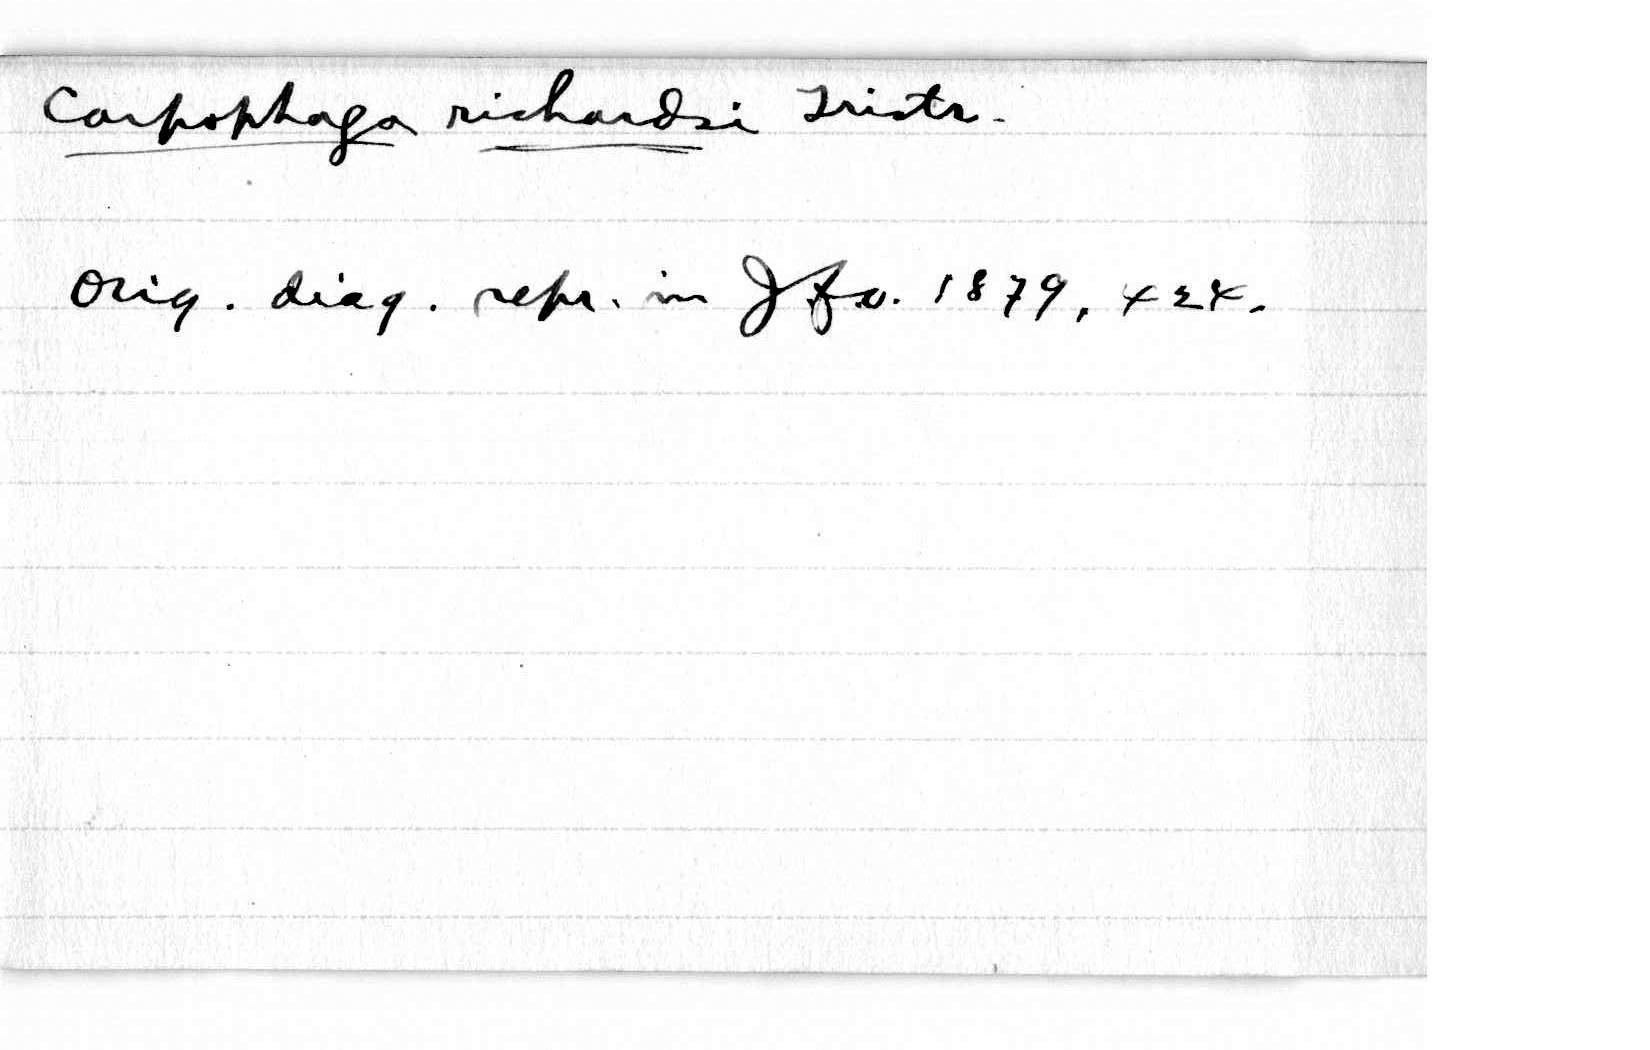 Carpophaga richardsi Tristr.
Orig. diag. repr. in JfO. 1879, 424.